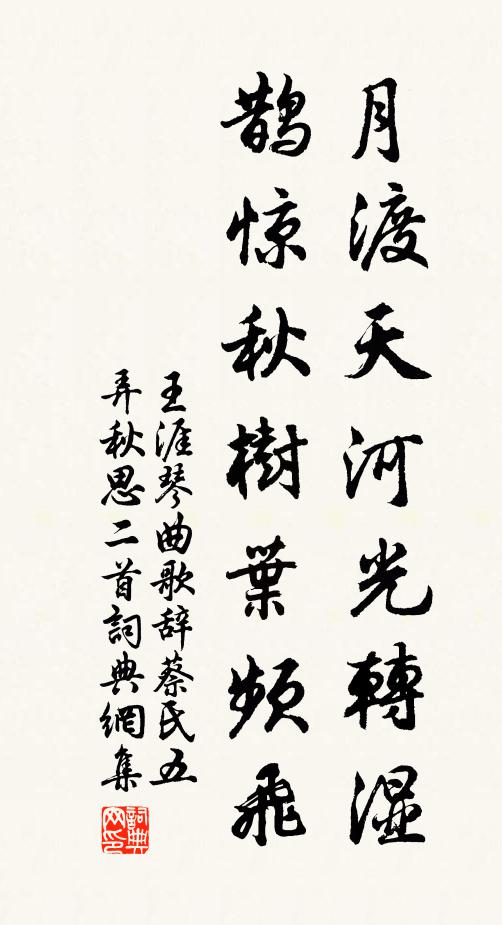 月渡天河光轉濕
鵲惊秋樹葉頻飛
王涯琴曲歌辞蔡氏五
弄秋思二首詞典網集
詞典
网印